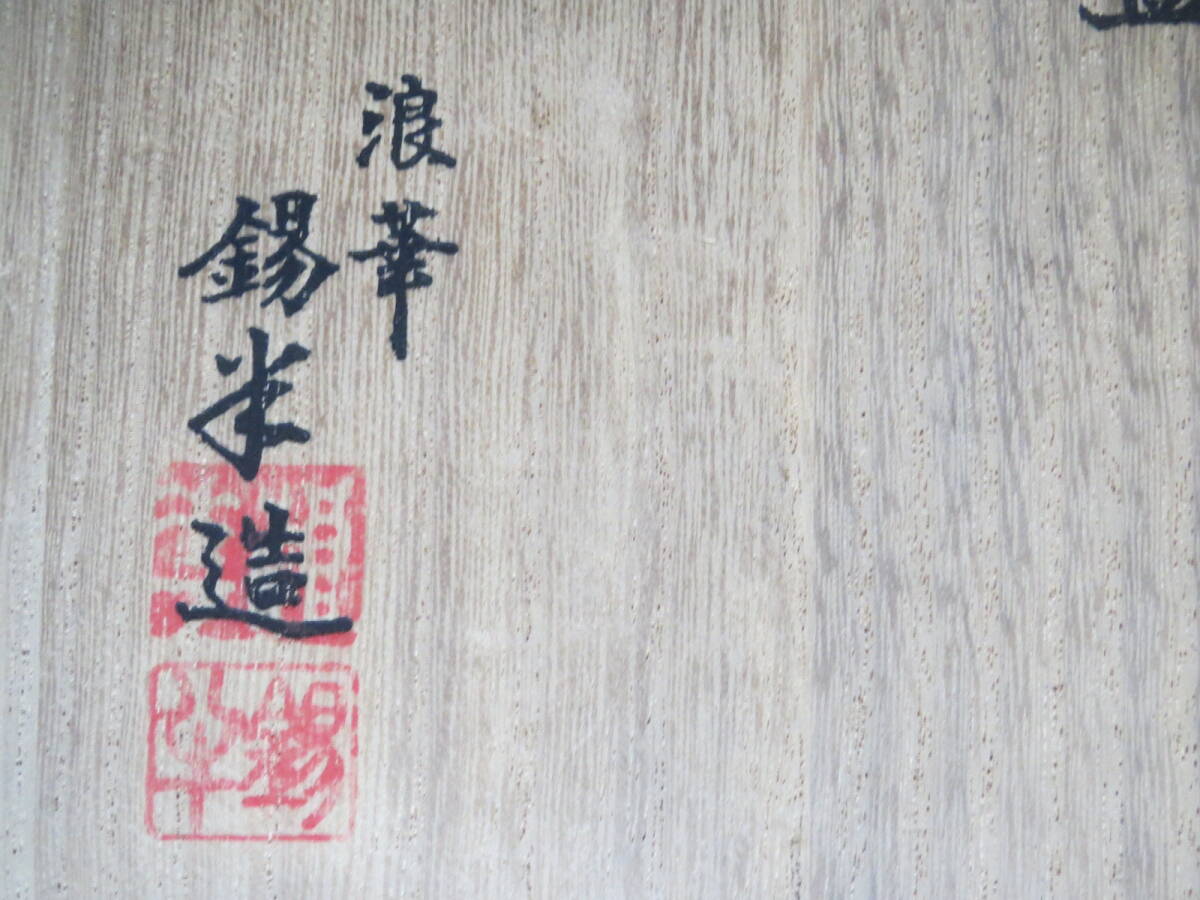 浪華
錫半造
錫半